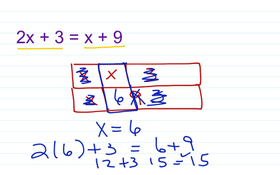 2x + 3 = x + 9
x
6
x = 6
2(6) + 3 = 6 + 9
12 + 3 15 = 15